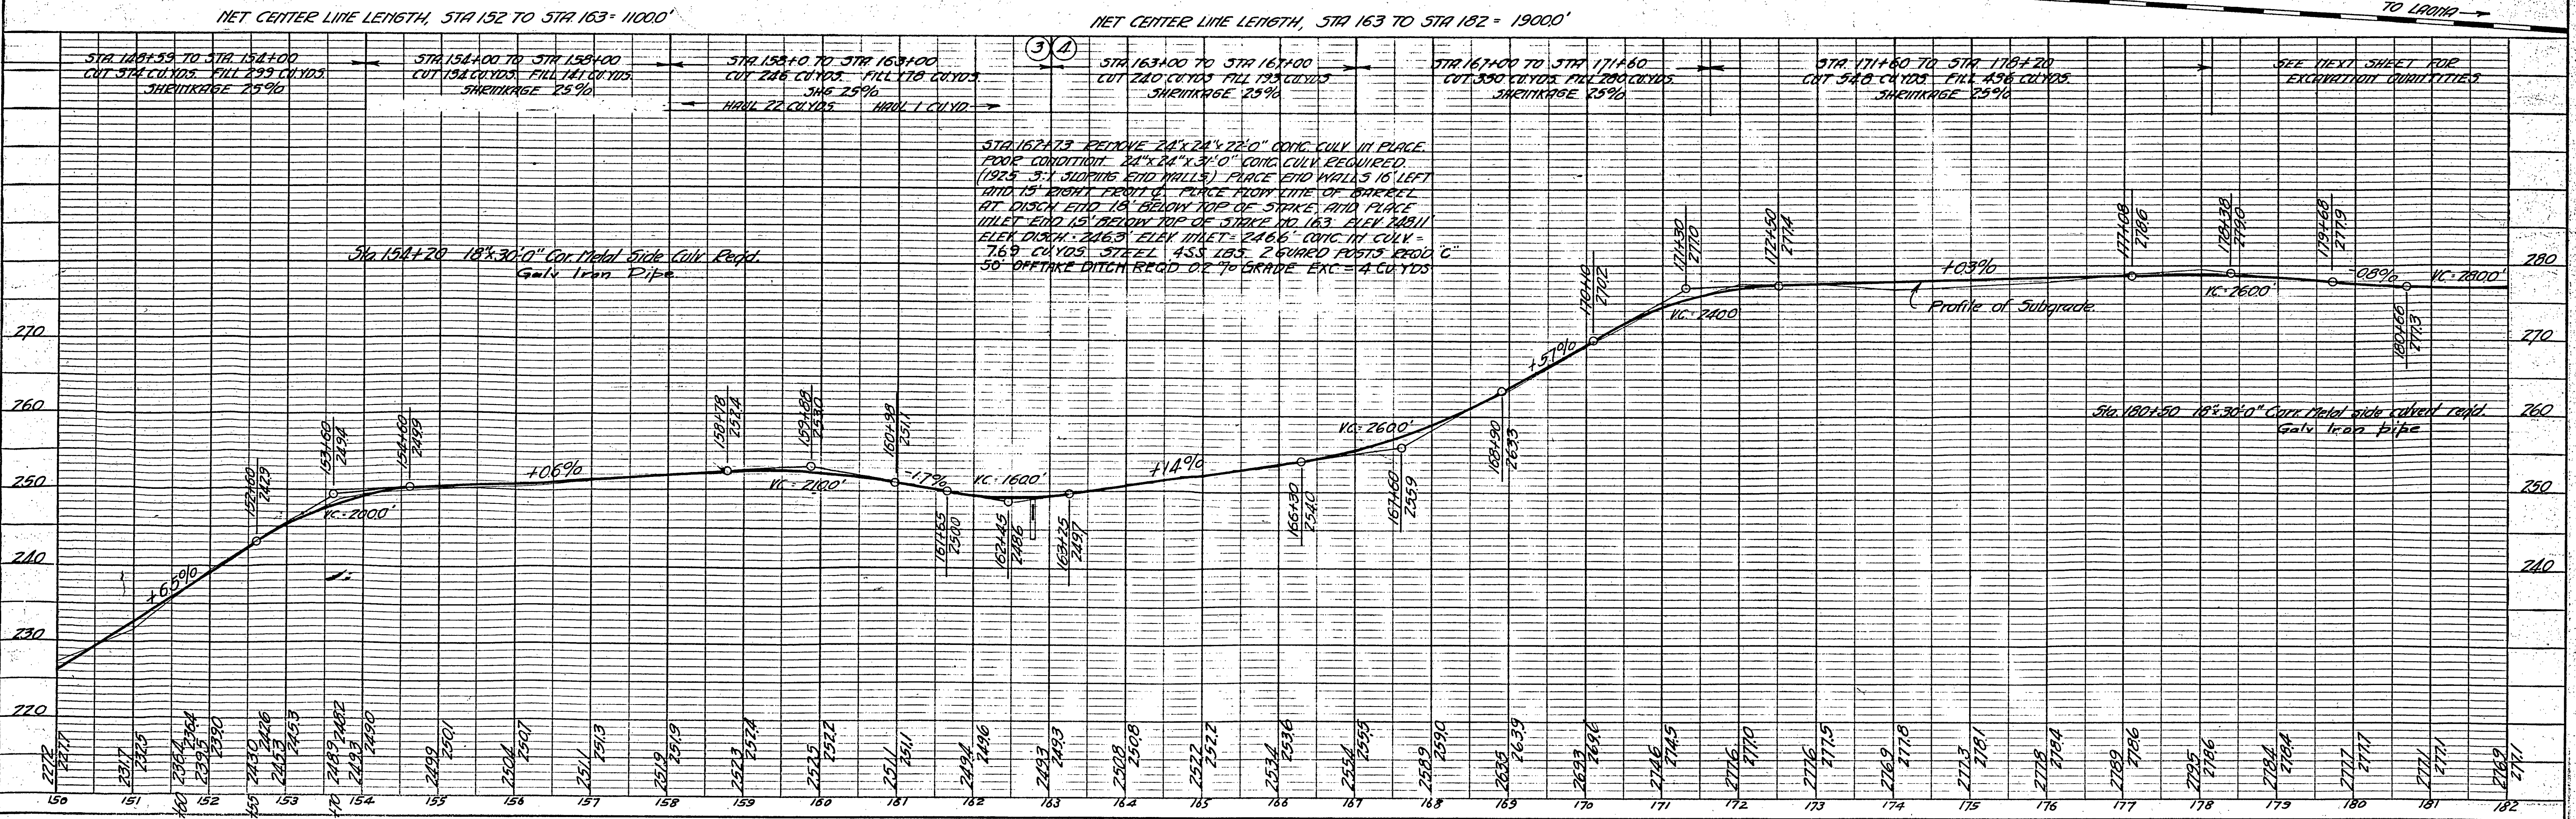 NET CENTER LINE LENGTH, STA 152 TO STA 163 = 1100.0'
NET CENTER LINE LENGTH, STA 163 TO STA 182 = 1900.0'
TO LAONA
STA 148+59 TO STA 154+00
CUT 374 CU.YDS. FILL 299 CU.YDS.
SHRINKAGE 25%
STA 154+00 TO STA 158+00
CUT 194 CU.YDS. FILL 141 CU.YDS.
SHRINKAGE 25%
STA 158+0 TO STA 163+00
CUT 246 CU.YDS. FILL 178 CU.YDS.
SHG 25%
HAUL 22 CU.YDS. HAUL 1 CU.YD.
3 4
STA 163+00 TO STA 167+00
CUT 240 CU.YDS. FILL 193 CU.YDS.
SHRINKAGE 25%
STA 167+00 TO STA 171+60
CUT 350 CU.YDS. FILL 280 CU.YDS.
SHRINKAGE 25%
STA 171+60 TO STA 178+20
CUT 548 CU.YDS. FILL 436 CU.YDS.
SHRINKAGE 25%
SEE NEXT SHEET FOR
EXCAVATION QUANTITIES
STA 162+73 REMOVE 24"x24"x22'0" CONC. CULV. IN PLACE.
POOR CONDITION. 24"x24"x31'-0" CONC. CULV. REQUIRED.
(1925 3:1 SLOPING END WALLS) PLACE END WALLS 16' LEFT
AND 15' RIGHT FROM ℄ PLACE FLOW LINE OF BARREL
AT DISCH END 1.8' BELOW TOP OF STAKE, AND PLACE
INLET END 1.5' BELOW TOP OF STAKE NO. 163. ELEV 248.11
ELEV. DISCH. = 246.3' ELEV. INLET = 246.6' CONC. IN CULV. =
7.69 CU.YDS. STEEL 455 LBS. 2 GUARD POSTS REQ'D "C"
50' OFFTAKE DITCH REQ'D 0.2 % GRADE EXC = 4 CU YDS
Sta. 154+20 18"x30'-0" Cor. Metal Side Culv. Reqd.
Galv. Iron Pipe
Profile of Subgrade.
Sta. 180+50 18"x30'-0" Corr. Metal side culvert req'd.
Galv Iron pipe
280
270
260
250
240
230
220
280
270
260
250
240
+6.5%
152+60 242.9
153+60 249.4
V.C. = 200.0'
154+60 249.9
+0.6%
158+78 252.4
159+88 253.0
V.C. = 210.0'
160+98 251.1
-1.7%
161+65 250.0
V.C. = 160.0'
162+45 248.6
163+25 249.7
+1.4%
166+30 254.0
V.C. = 260.0'
167+60 255.9
168+90 263.3
+5.7%
170+10 270.2
171+30 277.0
V.C. = 240.0
172+50 277.4
+0.3%
177+08 278.6
178+38 279.0
V.C. = 260.0'
179+68 277.9
-0.8%
180+66 277.3
V.C. = 280.0'
227.2 227.7
231.7 232.5
236.4 236.4
239.5 239.0
243.0 242.6
245.3 245.3
248.9 248.2
249.3 249.0
249.9 250.1
250.4 250.7
251.1 251.3
251.9 251.9
252.3 252.4
252.5 252.2
251.1 251.1
249.4 249.6
249.3 249.3
250.8 250.8
252.2 252.2
253.4 253.6
255.4 255.5
258.9 259.0
263.5 263.9
269.3 269.6
274.6 274.5
277.6 277.0
277.6 277.5
276.9 277.8
277.3 278.1
277.8 278.4
278.9 278.6
279.5 278.6
278.4 278.4
277.7 277.7
277.1 277.1
276.9 277.1
150 151 +60 152 +55 153 +70 154 155 156 157 158 159 160 161 162 163 164 165 166 167 168 169 170 171 172 173 174 175 176 177 178 179 180 181 182